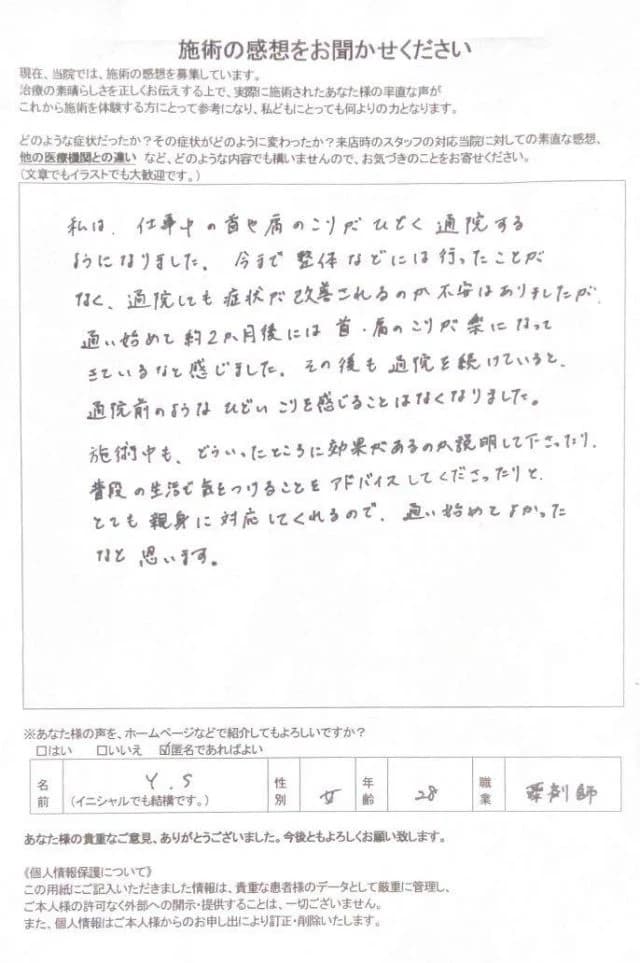 施術の感想をお聞かせください
現在、当院では、施術の感想を募集しています。
治療の素晴らしさを正しくお伝えする上で、実際に施術されたあなた様の率直な声が
これから施術を体験する方にとって参考になり、私どもにとっても何よりの力となります。
どのような症状だったか?その症状がどのように変わったか?来店時のスタッフの対応当院に対しての素直な感想、
他の医療機関との違い など、どのような内容でも構いませんので、お気づきのことをお寄せください。
(文章でもイラストでも大歓迎です。)
私は、仕事中の首や肩のこりがひどく通院する
ようになりました。今まで整体などには行ったことが
なく、通院しても症状が改善されるのか不安はありましたが、
通い始めて約2か月後には首・肩のこりが楽になって
きているなと感じました。その後も通院を続けていると、
通院前のようなひどいこりを感じることはなくなりました。
施術中も、どういったところに効果があるのか説明して下さったり、
普段の生活で気をつけることをアドバイスしてくださったりと、
とても親身に対応してくれるので、通い始めてよかった
なと思います。
※あなた様の声を、ホームページなどで紹介してもよろしいですか?
□はい □いいえ ☑匿名であればよい
名前 Y.S (イニシャルでも結構です。) 性別 女 年齢 28 職業 薬剤師
あなた様の貴重なご意見、ありがとうございました。今後ともよろしくお願い致します。
《個人情報保護について》
この用紙にご記入いただきました情報は、貴重な患者様のデータとして厳重に管理し、
ご本人様の許可なく外部への開示・提供することは、一切ございません。
また、個人情報はご本人様からのお申し出により訂正・削除いたします。